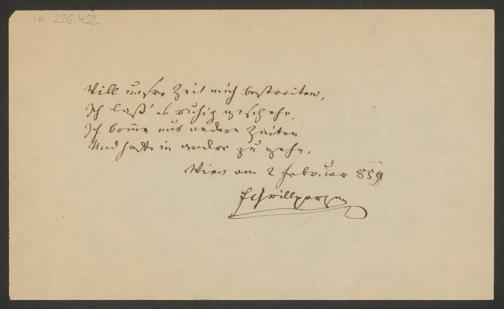 I.N. 226.452
Will unsre Zeit mich bestreiten,
Ich laß' es ruhig geschehn.
Ich kom̄e aus andern Zeiten
Und hoffe in andre zu gehn.
Wien am 2 Februar 859
FGrillparzer